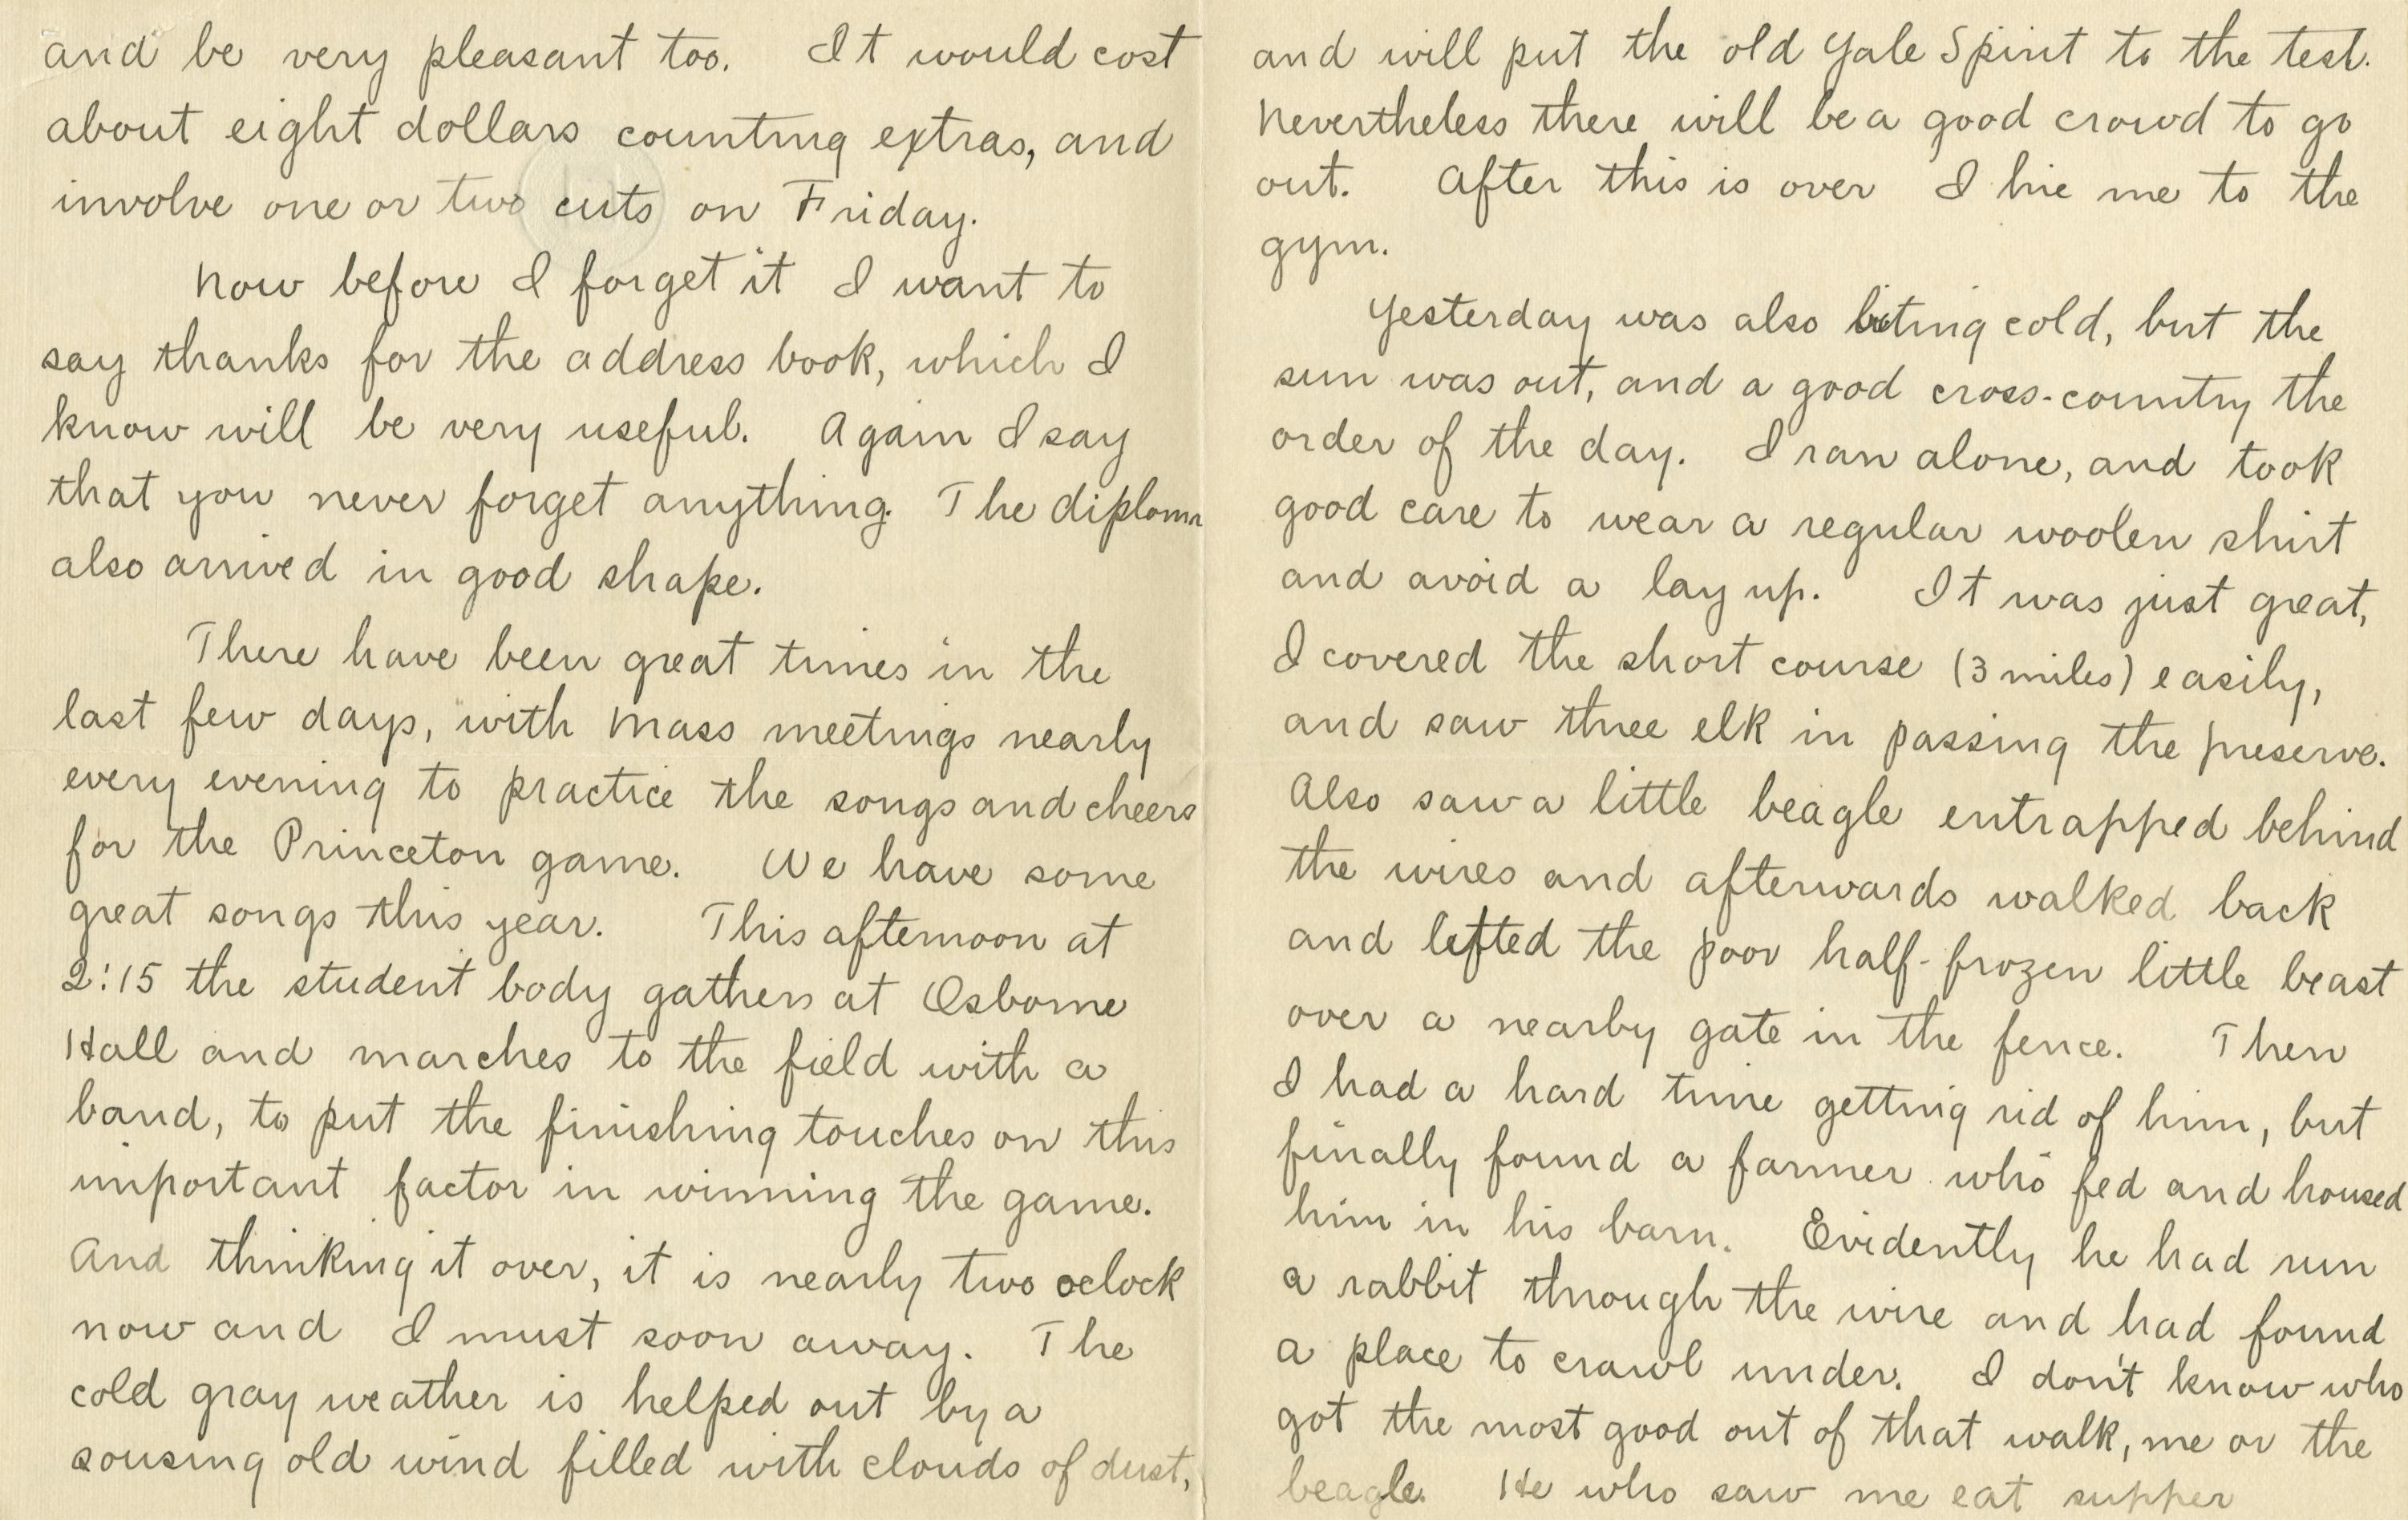 and be very pleasant too. It would cost
about eight dollars counting extras, and
involve one or two cuts on Friday.
Now before I forget it I want to
say thanks for the address book, which I
know will be very useful. Again I say
that you never forget anything. The diploma
also arrived in good shape.
There have been great times in the
last few days, with mass meetings nearly
every evening to practice the songs and cheers
for the Princeton game. We have some
great songs this year. This afternoon at
2:15 the student body gathers at Osborne
Hall and marches to the field with a
band, to put the finishing touches on this
important factor in winning the game.
And thinking it over, it is nearly two oclock
now and I must soon away. The
cold gray weather is helped out by a
sousing old wind filled with clouds of dust,
and will put the old Yale Spirit to the test.
Nevertheless there will be a good crowd to go
out. After this is over I hie me to the
gym.
Yesterday was also biting cold, but the
sun was out, and a good cross-country the
order of the day. I ran alone, and took
good care to wear a regular woolen shirt
and avoid a lay up. It was just great,
I covered the short course (3 miles) easily,
and saw three elk in passing the preserve.
Also saw a little beagle entrapped behind
the wires and afterwards walked back
and lifted the poor half-frozen little beast
over a nearby gate in the fence. Then
I had a hard time getting rid of him, but
finally found a farmer who fed and housed
him in his barn. Evidently he had run
a rabbit through the wire and had found
a place to crawl under. I don't know who
got the most good out of that walk, me or the
beagle. He who saw me eat supper